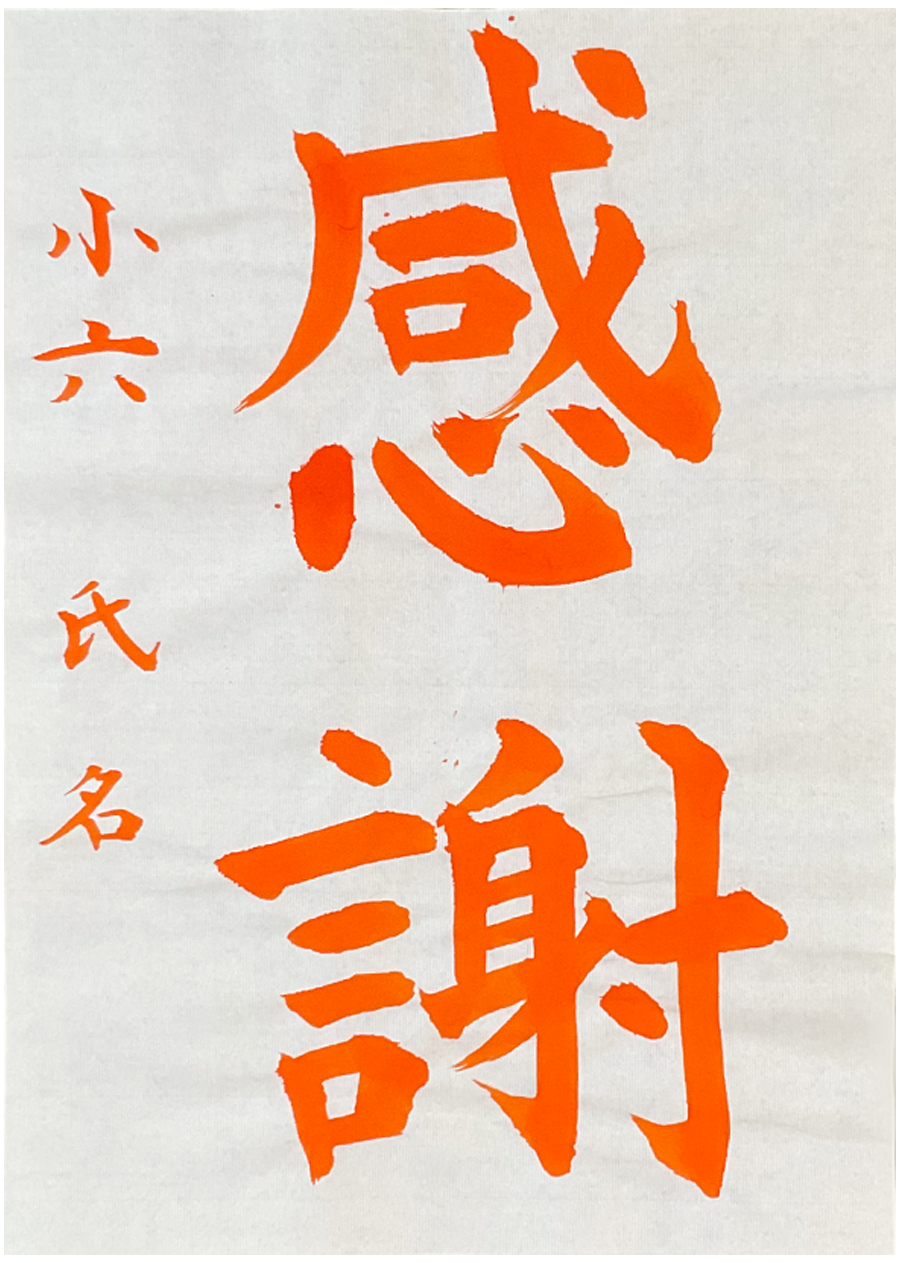 感謝
小六 氏名